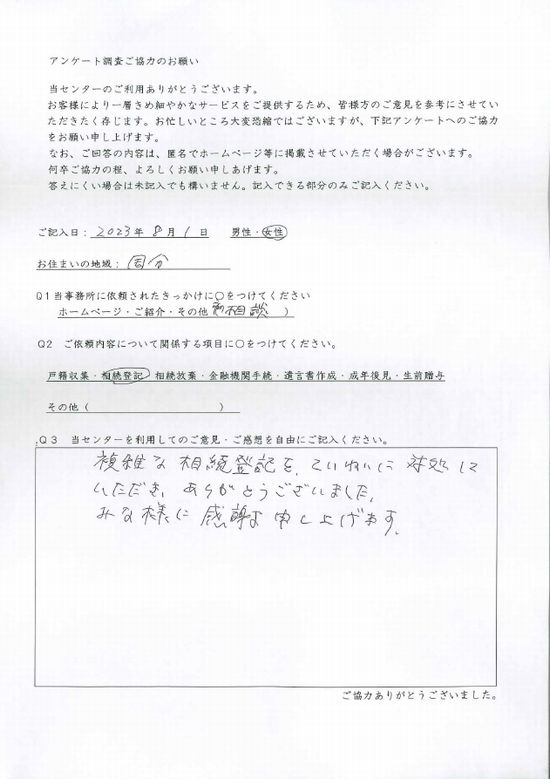 アンケート調査ご協力のお願い
当センターのご利用ありがとうございます。
お客様により一層きめ細やかなサービスをご提供するため、皆様方のご意見を参考にさせてい
ただきたく存じます。お忙しいところ大変恐縮ではございますが、下記アンケートへのご協力
をお願い申し上げます。
なお、ご回答の内容は、匿名でホームページ等に掲載させていただく場合がございます。
何卒ご協力の程、よろしくお願い申しあげます。
答えにくい場合は未記入でも構いません。記入できる部分のみご記入ください。
ご記入日：2023年 8月 1日 男性・女性
お住まいの地域：国分
Q1当事務所に依頼されたきっかけに○をつけてください
ホームページ・ご紹介・その他 相談 ）
Q2 ご依頼内容について関係する項目に○をつけてください。
戸籍収集・相続登記・相続放棄・金融機関手続・遺言書作成・成年後見・生前贈与
その他（ ）
.Q3 当センターを利用してのご意見・ご感想を自由にご記入ください。
複雑な相続登記を、ていねいに対処して
いただき、ありがとうございました。
みな様に感謝申し上げます。
ご協力ありがとうございました。